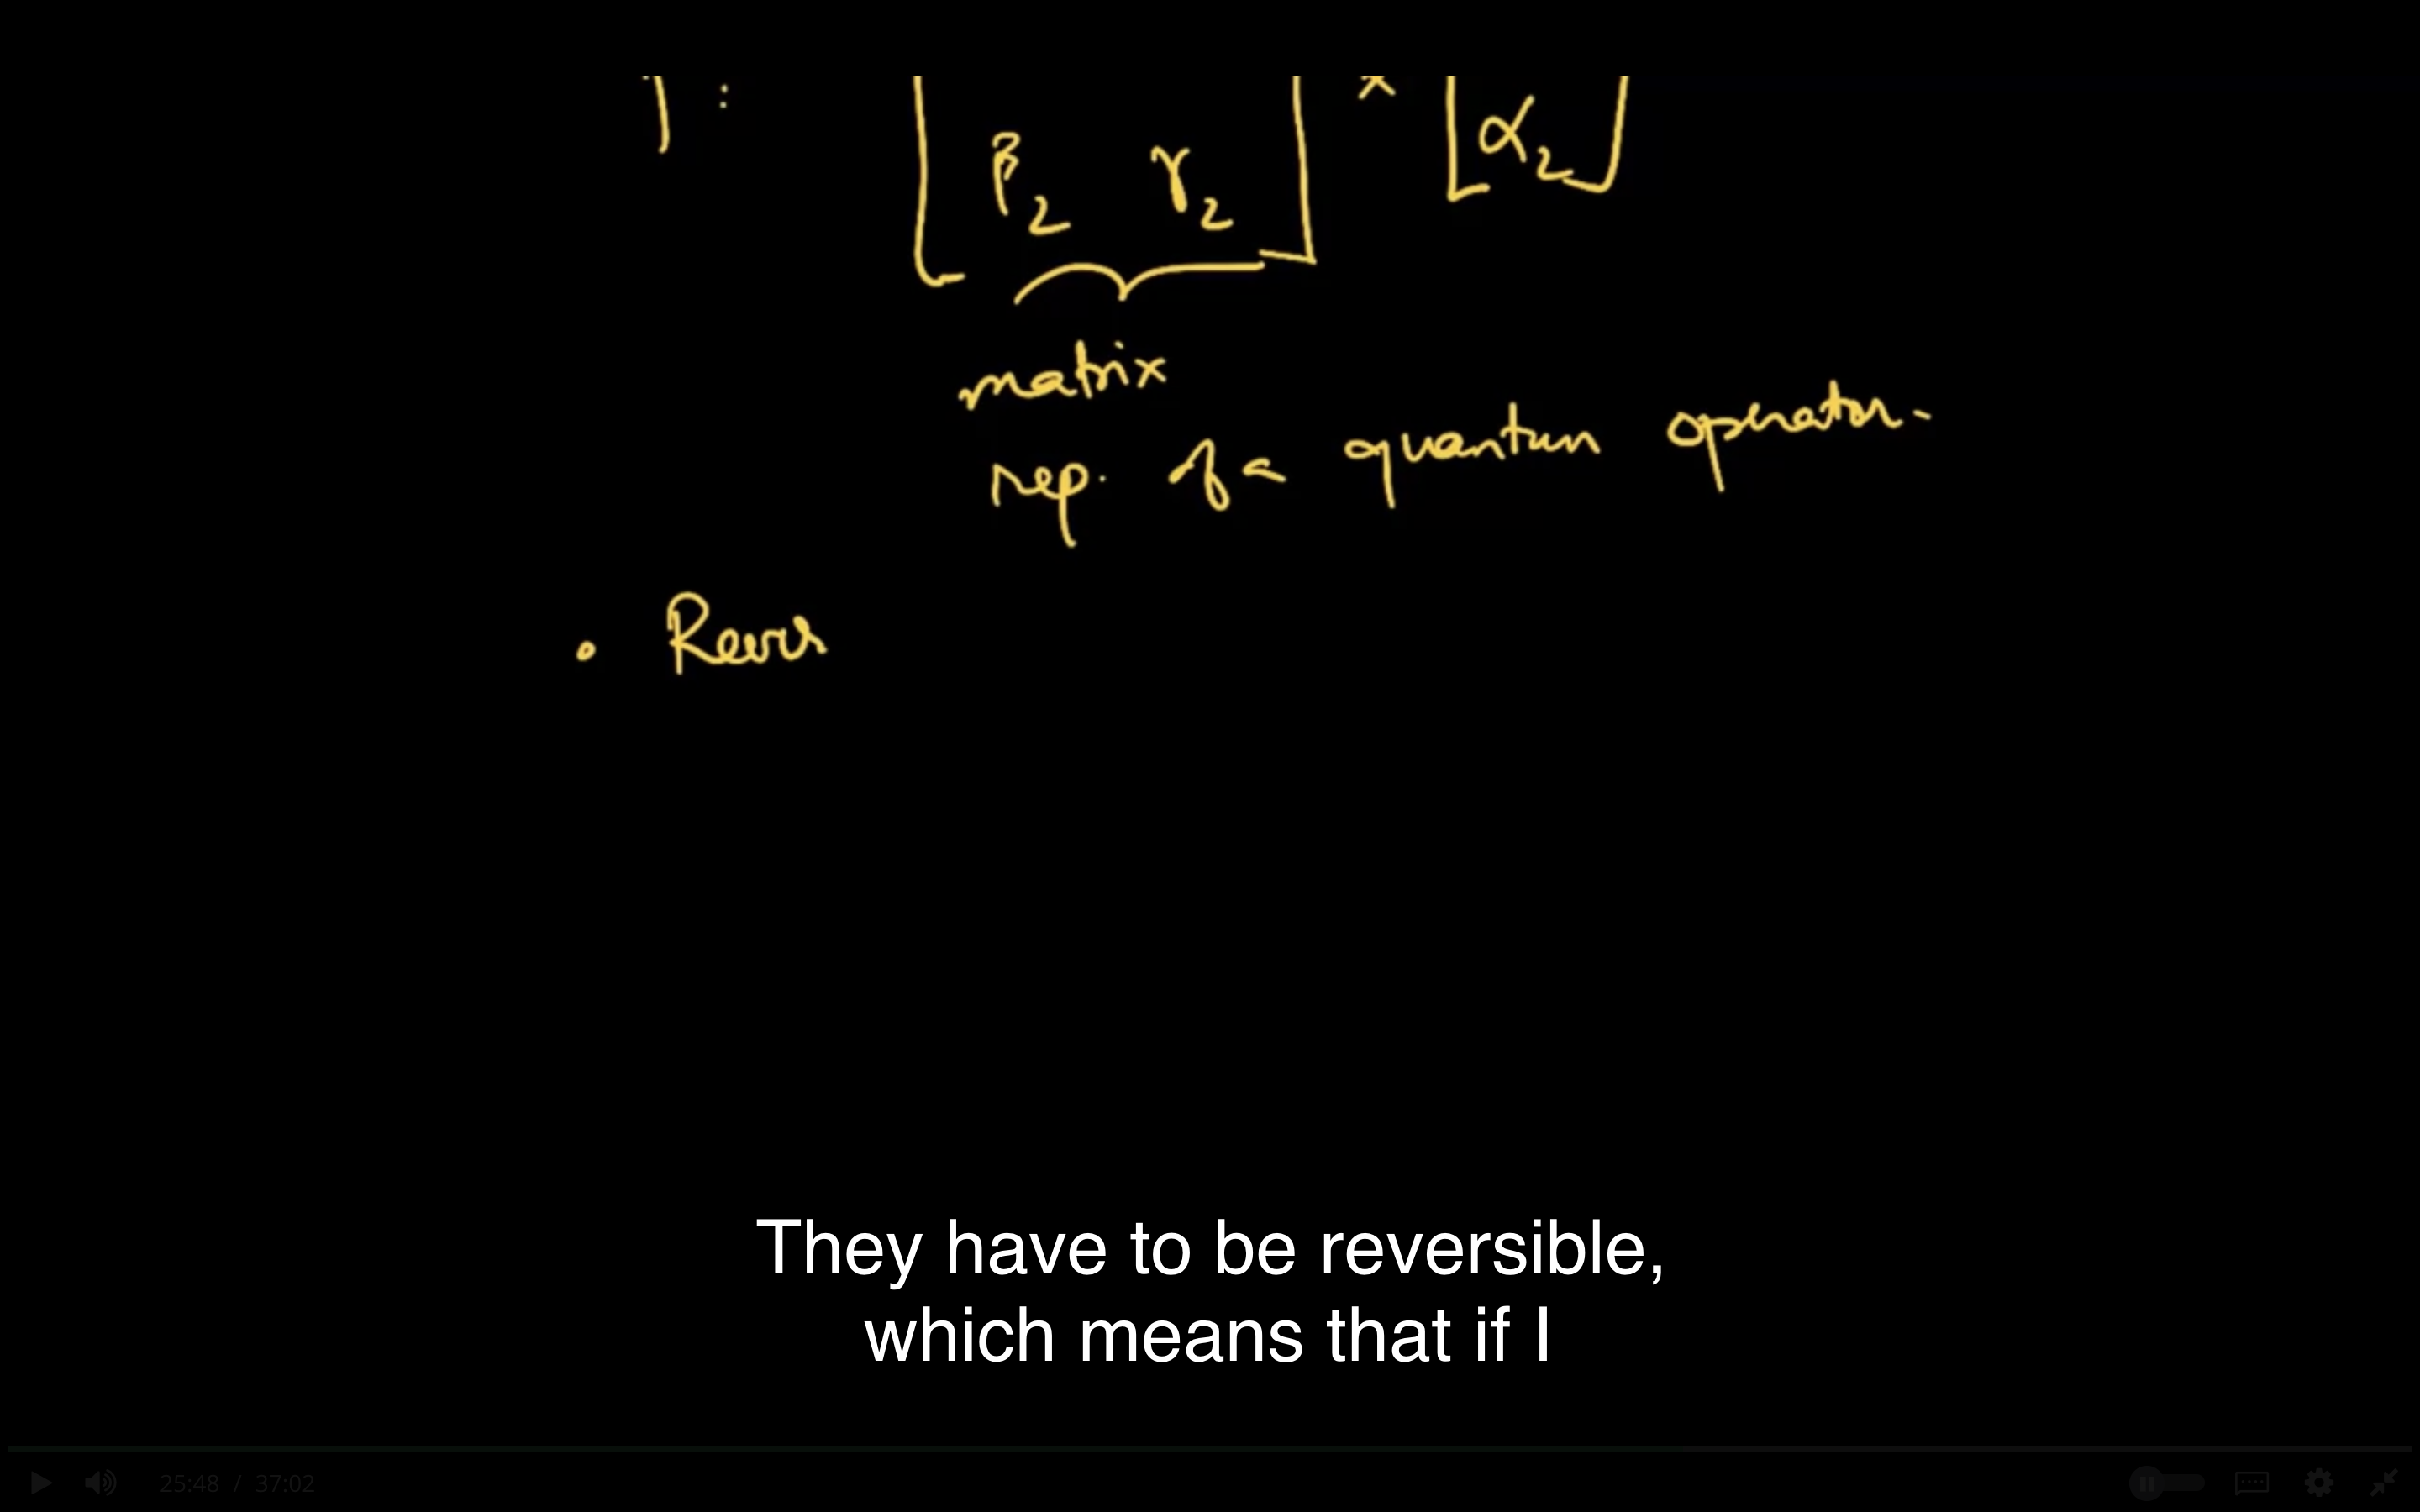 : [ β2 γ2 ] × [ α2 ]
matrix
rep. of a quantum operator.
• Revers
They have to be reversible,
which means that if I
25:48 / 37:02